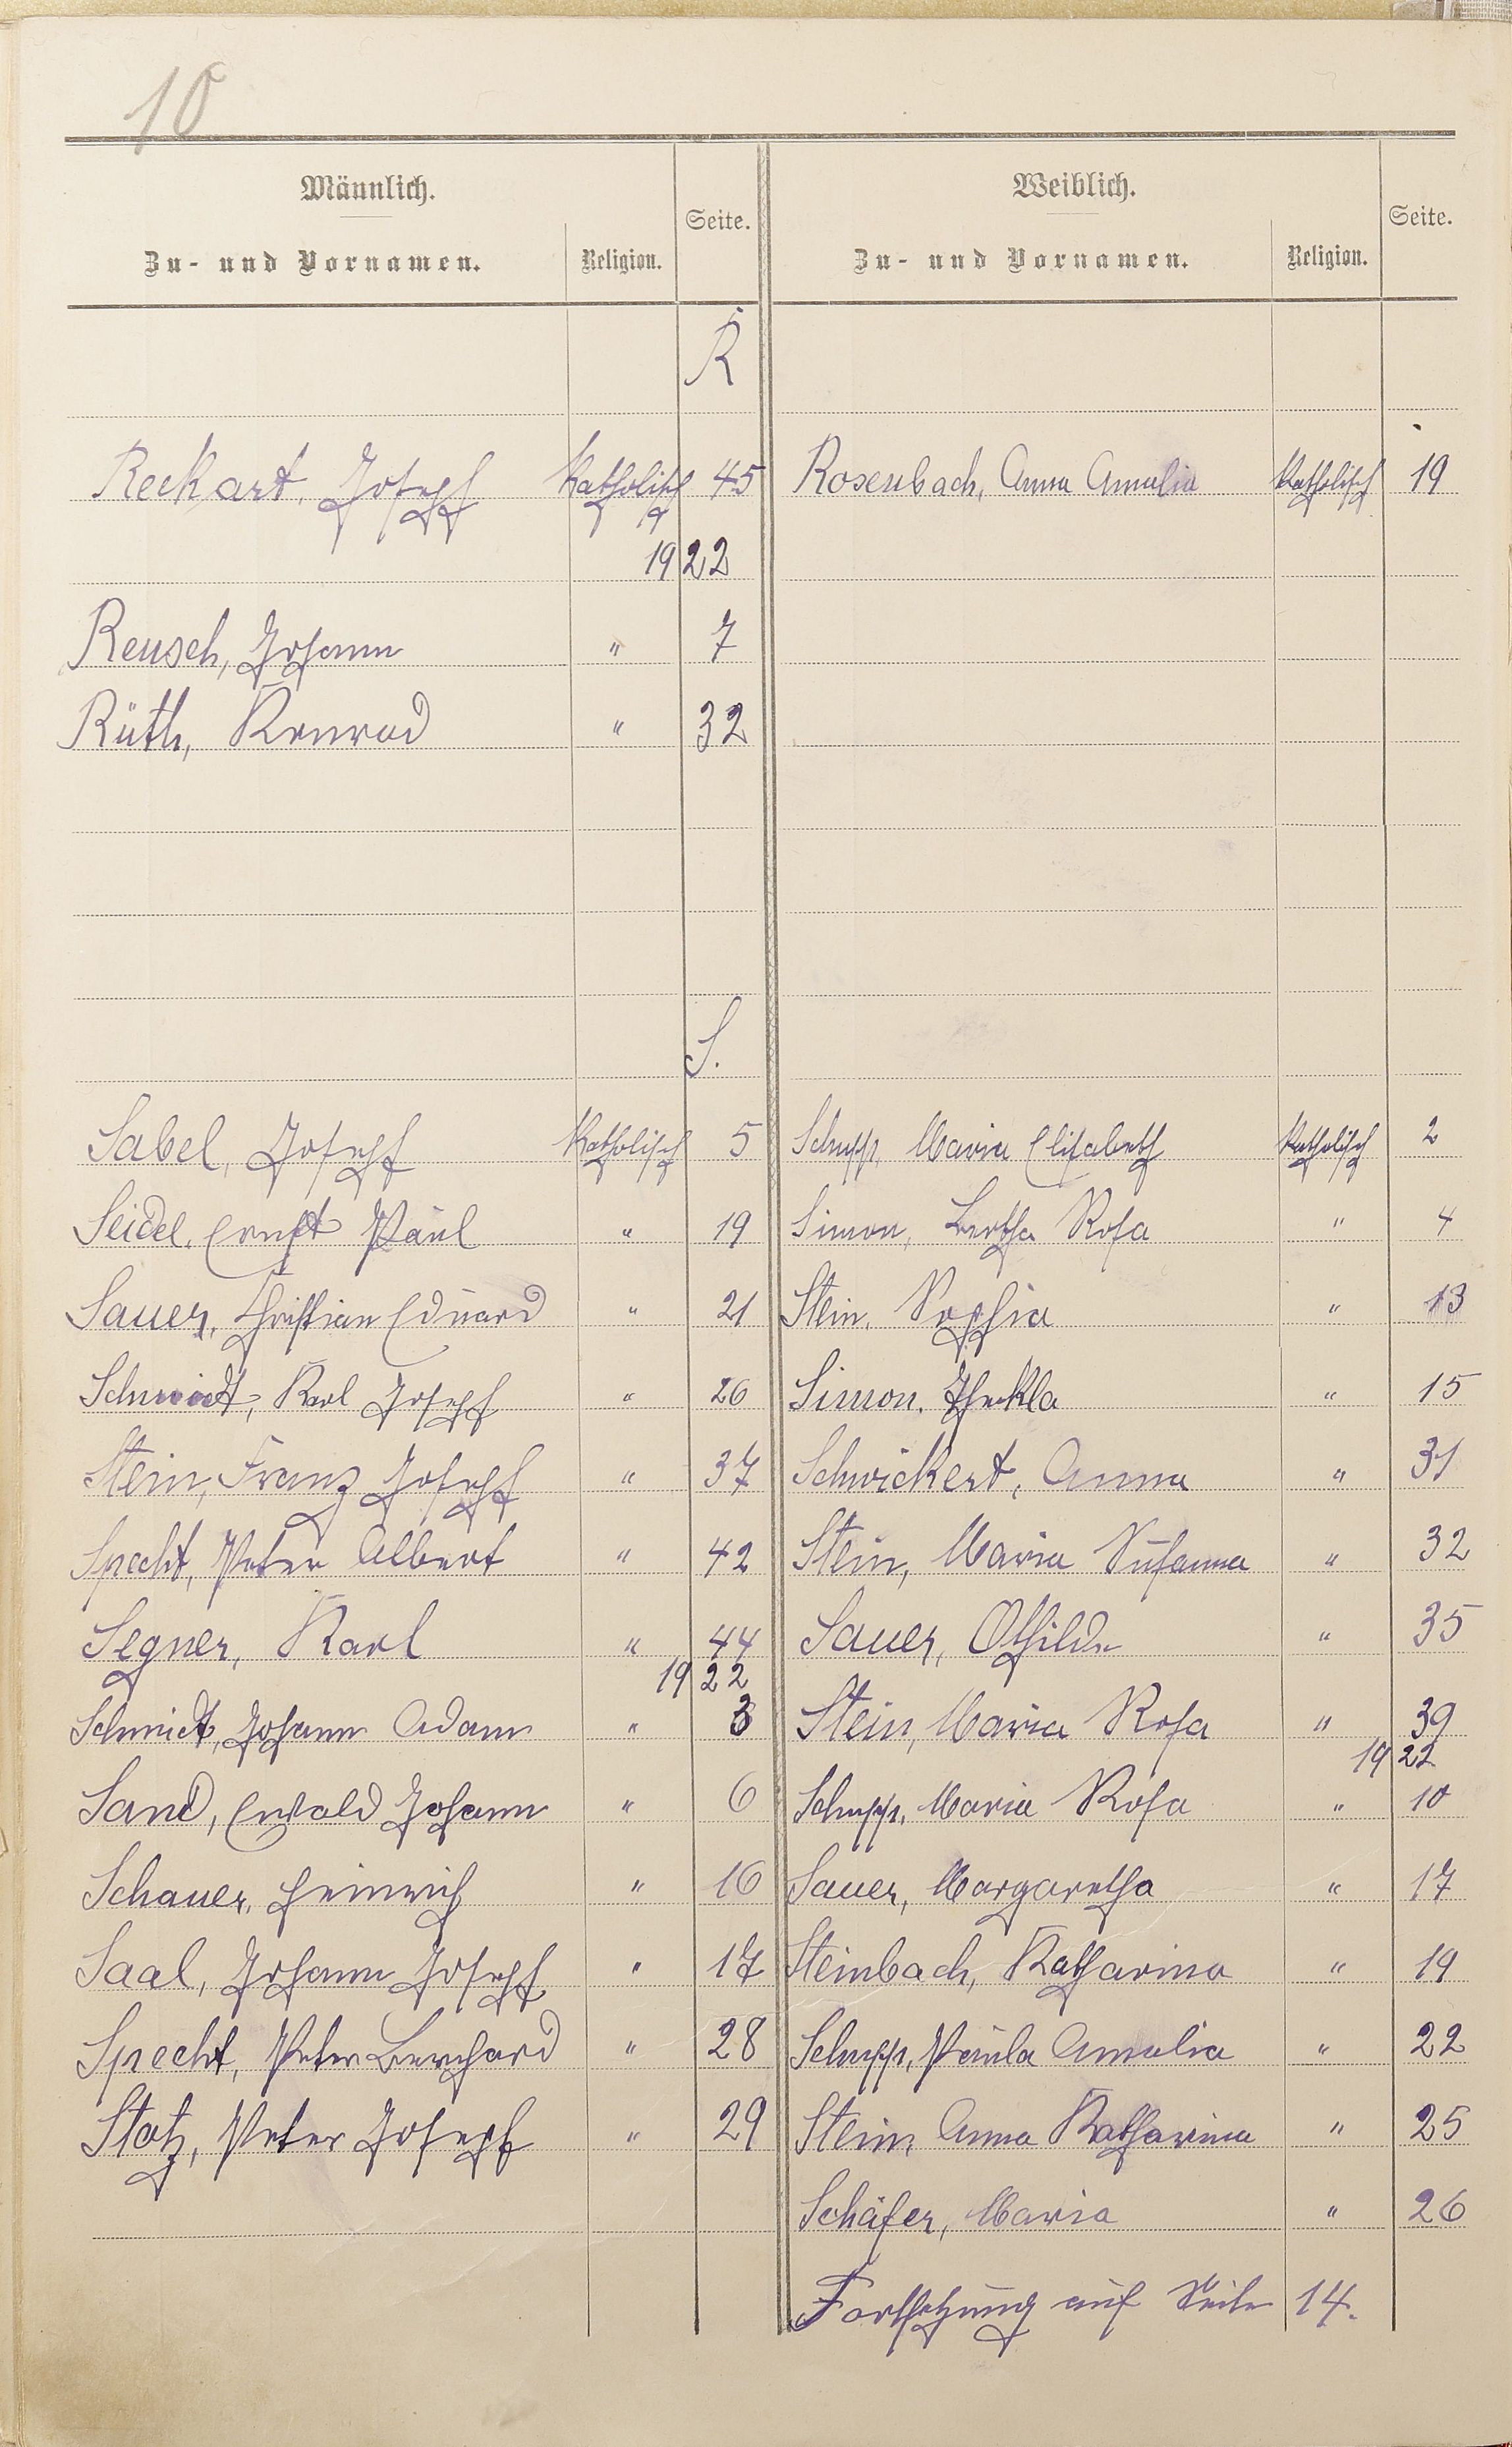 10
Männlich. Weiblich.
Seite. Seite.
Zu- und Vornamen. Religion. Zu- und Vornamen. Religion.
R
Reckart, Joseph Katholisch 45 Rosenbach, Anna Amalia Katholisch 19
1922
Reusch, Johann " 7
Rüth, Konrad " 32
S.
Sabel, Joseph Katholisch 5 Schupp, Maria Elisabeth Katholisch 2
Seidel, Ernst Paul " 19 Simon, Bertha Rosa " 4
Sauer, Christian Eduard " 21 Stein, Sophia " 13
Schmidt, Karl Joseph " 26 Simon, Thekla " 15
Stein, Franz Joseph " 37 Schwickert, Anna " 31
Specht, Peter Albert " 42 Stein, Maria Susanna " 32
Segner, Karl " 44 Sauer, Othilde " 35
1922
Schmidt, Johann Adam " 3 Stein, Maria Rosa " 39
1922
Sand, Ewald Johann " 6 Schupp, Maria Rosa " 10
Schauer, Heinrich " 16 Sauer, Margaretha " 17
Saal, Johann Joseph " 17 Steinbach, Katharina " 19
Specht, Peter Bernhard " 28 Schupp, Paula Amalia " 22
Statz, Peter Joseph " 29 Stein, Anna Katharina " 25
Schäfer, Maria " 26
Fortsetzung auf Seite 14.